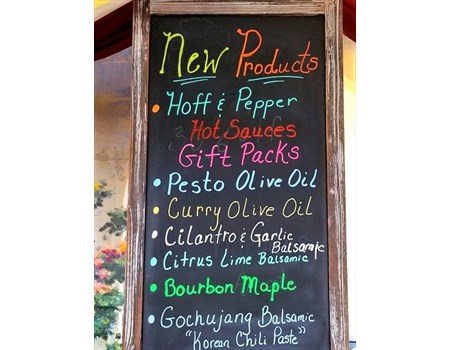 New Products
• Hoff & Pepper
Hot Sauces
Gift Packs
• Pesto Olive Oil
• Curry Olive Oil
• Cilantro & Garlic
Balsamic
• Citrus Lime Balsamic
• Bourbon Maple
• Gochujang Balsamic
"Korean Chili Paste"